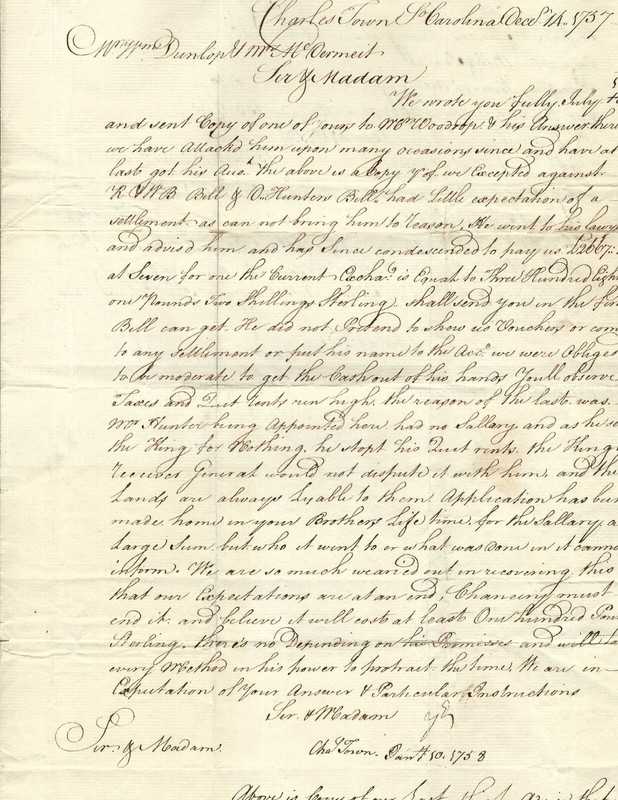 Charles Town So Carolina Decr 14. 1757
Dunlop & Mrs McDermeit
Sir & Madam
We wrote you fully July
and sent Copy of one of yours to Mr Woodrop & his Answer there
we have Attackd him upon many occasions since and have at
last got his Acct. the above is a Copy yr of. we Excepted against
R & WB Bill & D Hunters Bill, had Little expectation of a
settlement. as can not bring him to reason, He went to his lawy
and advisd him and has since condescended to pay us £2667:
at Seven for one the Current Excha. is Equal to Three Hundred Eighty
one Pounds Two Shillings Sterling. shall send you in the first
Bill can get. He did not Pretend to show us Vouchers or come
to any settlement or put his name to the Acct. we were Obliged
to be moderate to get the Cash out of his hands Youll observe
Taxes and Quet rents run high. the reason of the last was.
Mr Hunter being Appointed here had no Sallary and as he se
the King for Nothing. he stopt his Quet rents. the Kings
receiver General would not dispute it with him, and the
Lands are always Lyable to them Application has been
made home in your Brothers Life time, for the Sallary, a
Large Sum, but who it went to or what was done in it cannot
inform. We are so much wearied out in recovering this
that our Expectations are at an end, Chancery must
end it. and believe it will cost at least One hundred Pound
Sterling. there's no Depending on his Promisses and will ta
every Method in his power to protract the time, We are in
Expectation of Your Answer & Particular Instructions
Sir. & Madam
Sir. & Madam. Chas Town. Janry 10. 1758
Above is Copy of our Last